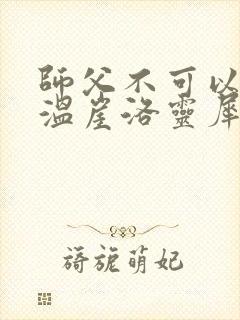 師父不可以
溫崖洛靈犀
旖旎萌妃